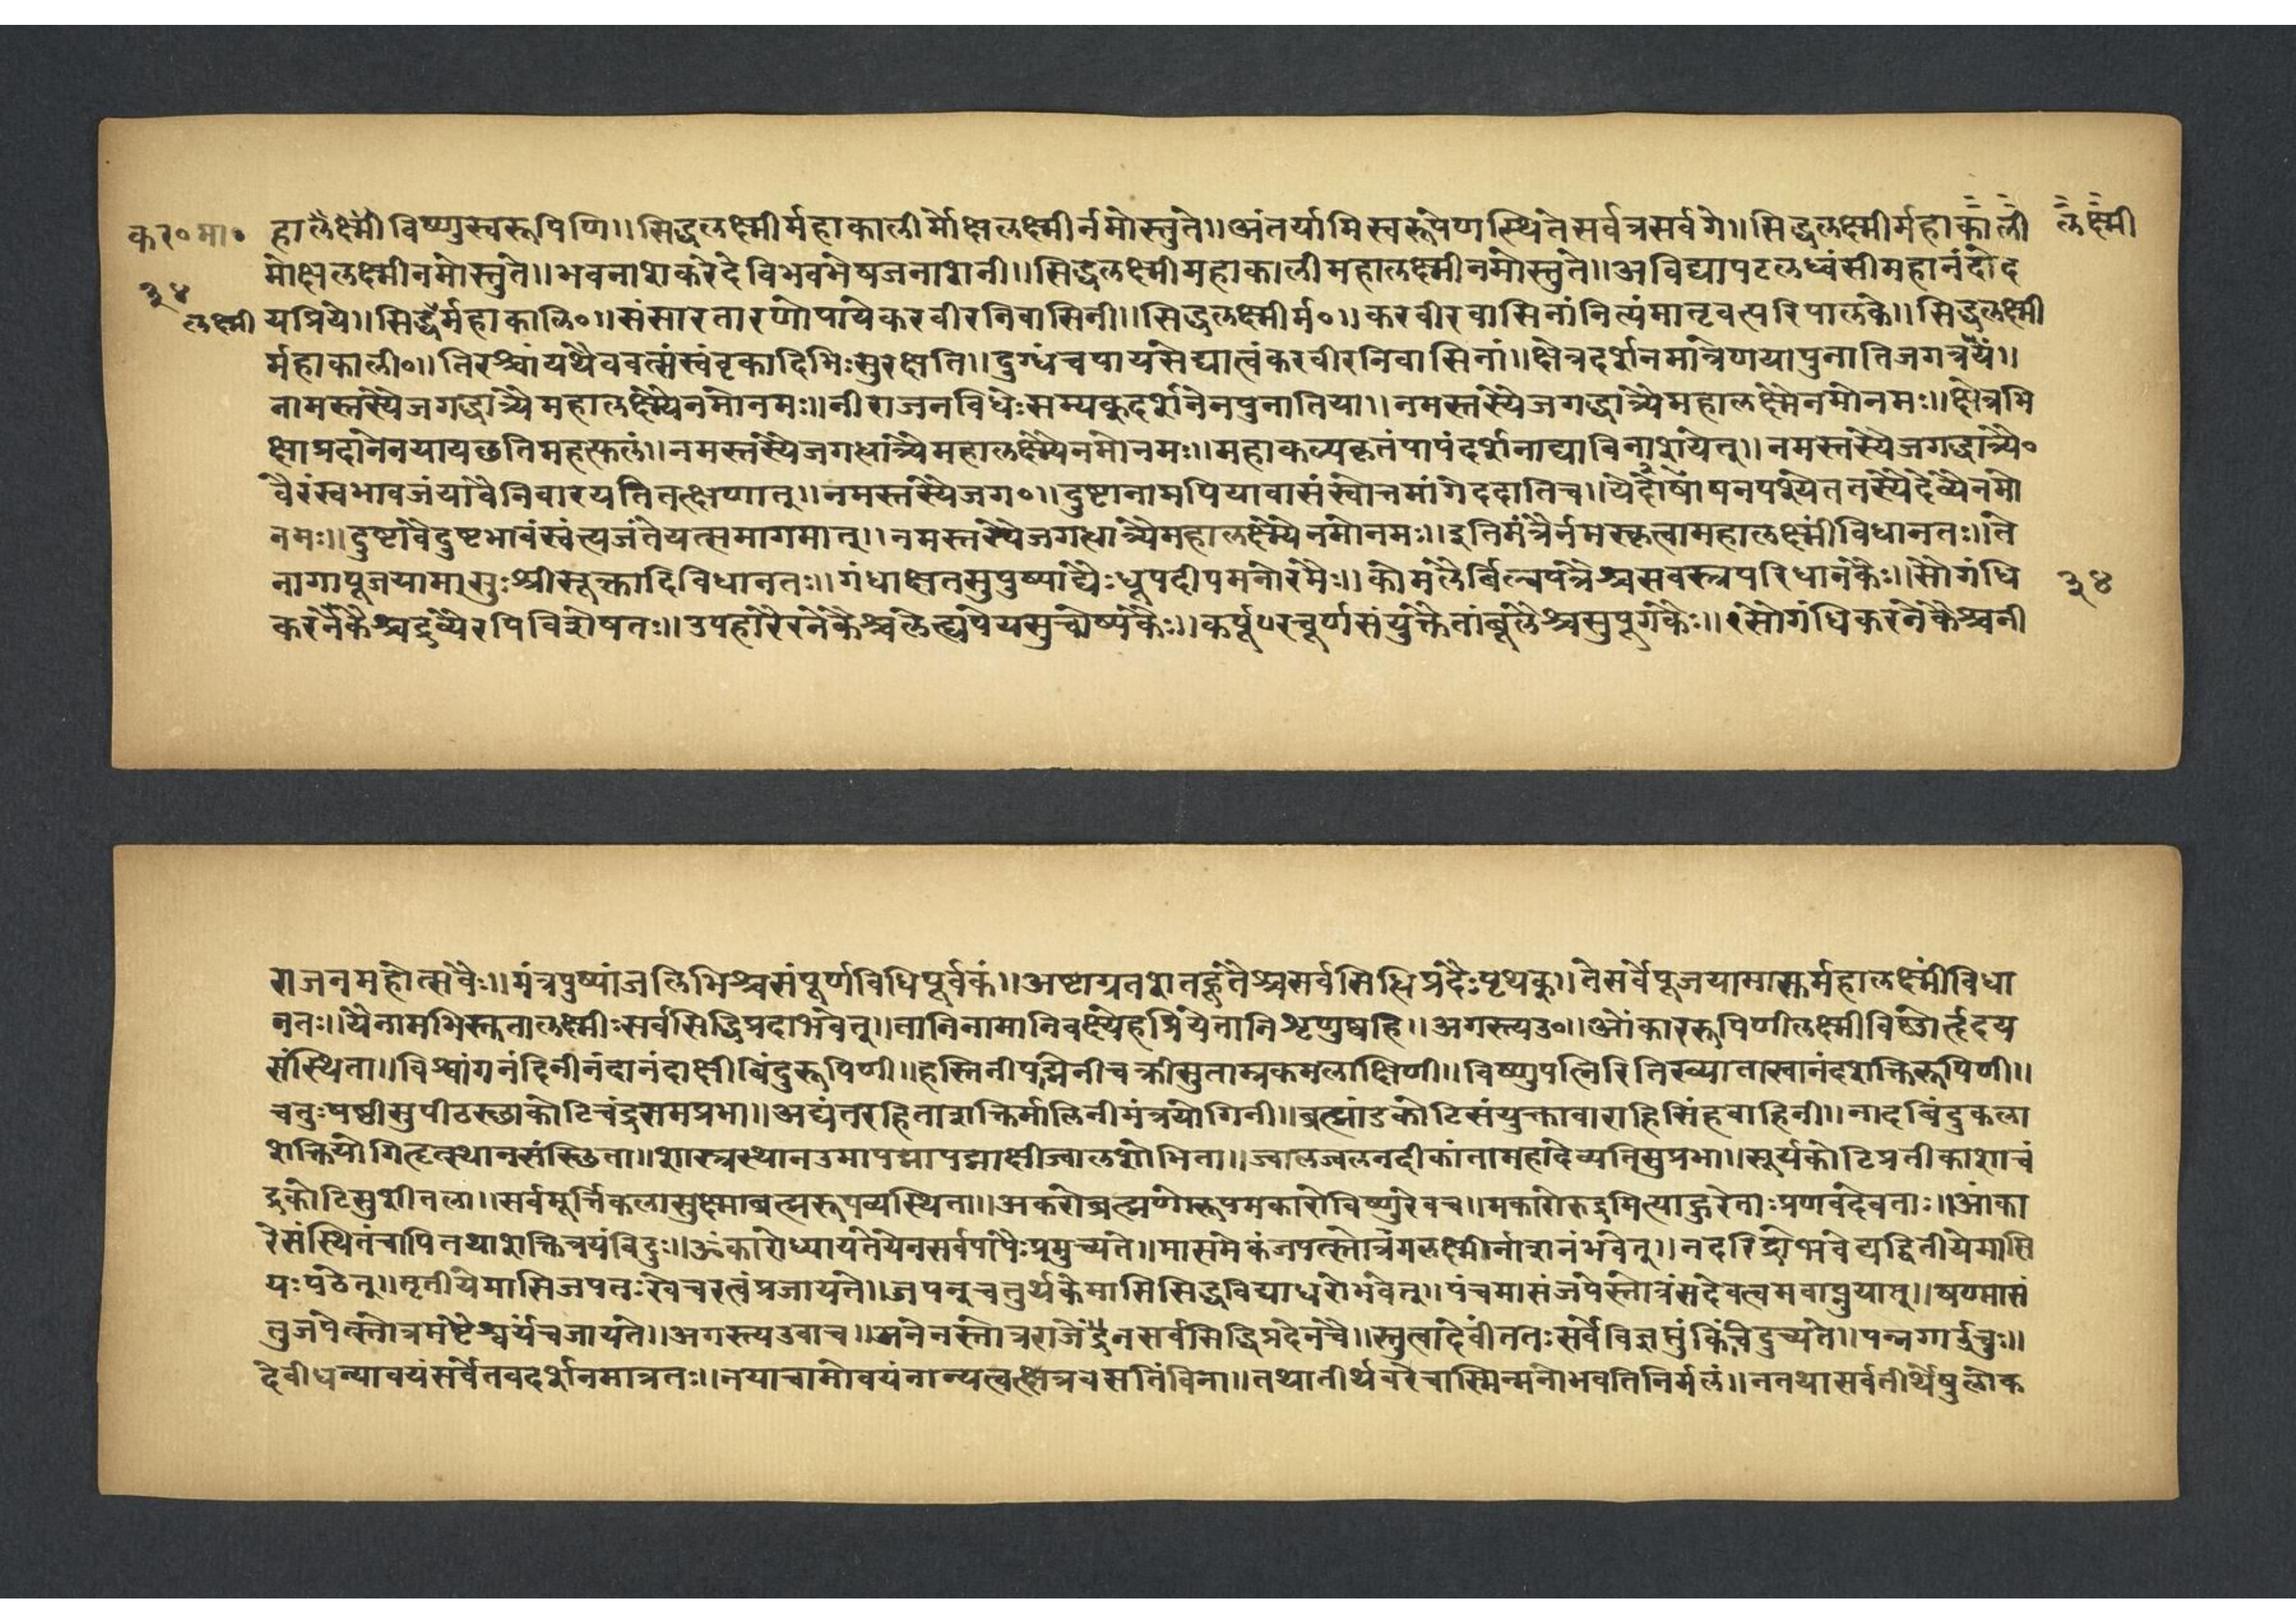 कर०मा० हालक्ष्मीविष्णुस्वरूपिणि॥सिद्धलक्ष्मीर्महाकालीर्मोक्षलक्ष्मीर्नमोस्तुते॥अंतर्यामिस्वरूपेणस्थितेसर्वत्रसर्वगे॥सिद्धलक्ष्मीर्महाकाली लक्ष्मी
मोक्षलक्ष्मीनमोस्तुते॥भवनाशकरेदेविभवभेषजनाशनी॥सिद्धलक्ष्मीमहाकालीमहालक्ष्मीनमोस्तुते॥अविद्यापटलध्वंसीमहानंदोद
३४
लक्ष्मी यप्रिये॥सिद्धैर्महाकालि०॥संसारतारणोपायेकरवीरनिवासिनी॥सिद्धलक्ष्मीर्म०॥करवीरवासिनांनित्यंमातृवत्परिपालके॥सिद्धलक्ष्मी
र्महाकाली०॥तिरश्चांयथैववत्संस्वंवृकादिभिःसुरक्षति॥दुग्धंचपायसेद्यात्वंकरवीरनिवासिनां॥क्षेत्रदर्शनमात्रेणयापुनातिजगत्रयं॥
नामस्तस्यैजगद्धात्र्यैमहालक्ष्म्यैनमोनमः॥नीराजनविधेःसम्यक्दर्शनेनपुनातिया॥नमस्तस्यैजगद्धात्र्यैमहालक्ष्मेनमोनमः॥क्षेत्रभि
क्षाप्रदानेनयायछतिमहत्फलं॥नमस्तस्यैजगधात्र्यैमहालक्ष्म्यैनमोनमः॥महाकल्पकृतंपापंदर्शनाद्याविनाशयेत्॥नमस्तस्यैजगद्धात्र्यै०
वैरंस्वभावजंयावैनिवारयतितत्क्षणात्॥नमस्तस्यैजग०॥दुष्टानामपियावासंस्वोत्तमांगेददातिच॥येदोषापनपश्येततस्यैदेव्यैनमो
नमः॥दुष्टावैदुष्टभावंस्वंत्यजंतेयत्समागमात्॥नमस्तस्यैजगधात्र्यैमहालक्ष्म्यैनमोनमः॥इतिमंत्रैर्नमस्कृत्वामहालक्ष्मींविधानतः॥ते
नागापूजयामासुःश्रीसूक्तादिविधानतः॥गंधाक्षतसुपुष्पाद्यैःधूपदीपमनोरमैः॥कोमलैर्बिल्वपत्रैश्चसवस्त्रपरिधानकैः॥सौगंधि
३४
करनेकैश्चद्रव्यैरपिविशेषतः॥उपहारैरनेकैश्चलेह्यपेयसुचोष्यकैः॥कर्पूरचूर्णसंयुक्तैतांबूलैश्चसुपूगकैः॥सौगंधिकरनेकैश्चनी
राजनमहोत्सवैः॥मंत्रपुष्पांजलिभिश्चसंपूर्णविधिपूर्वकं॥अष्टाग्रतशतहूतैश्चसर्वसिधिप्रदैःपृथक्॥तेसर्वेपूजयामास्तर्महालक्ष्मींविधा
नतः॥यैनामभिस्तुतालक्ष्मीःसर्वसिद्धिप्रदाभवेत्॥तानिनामानिवक्ष्येहंप्रियेतानिशृणुष्वहि॥अगस्त्यउ०॥ओंकाररूपिणीलक्ष्मीविष्णोर्हृदय
संस्थिता॥विश्वांगनंदिनीनंदानंदाक्षीबिंदुरूपिणी॥हस्तिनीपद्मिनीचक्रीसुताम्रकमलाक्षिणी॥विष्णुपत्निरितिख्यातास्वानंदशक्तिरूपिणी॥
चतुःषष्ठीसुपीठस्छाकोटिचंद्रसमप्रभा॥अद्यंतरहिताशक्तिर्मालिनीमंत्रयोगिनी॥ब्रह्मांडकोटिसंयुक्तावाराहिसिंहवाहिनी॥नादबिंदुकला
शक्तियोगिहृत्स्थानसंस्छिता॥शास्त्रस्थानउमापद्मापद्माक्षीज्वालशोभिता॥ज्वालज्वलनदीकांतामहादेव्यतिसुप्रभा॥सूर्यकोटिप्रतीकाशाचं
द्रकोटिसुशीतला॥सर्वमूर्त्तिकलासुक्ष्माब्रह्मरूपव्यस्थिता॥अकरोब्रह्मणोरूपमकारोविष्णुरेवच॥मकारोरुद्रमित्याहुरेताःप्रणवदेवताः॥ओंका
रेसंस्थितंचापितथाशक्तित्रयंविदुः॥ॐकारोध्यायतेयेनसर्वपापैःप्रमुच्यते॥मासमेकंजपत्स्तोत्रंमलक्ष्मीर्नाशनंभवेत्॥नदरिद्रोभवेद्यद्वितीयेमासि
यःपठेत्॥तृतीयेमासिजपतःखेचरत्वंप्रजायते॥जपन्चतुर्थकेमासिसिद्धविद्याधरोभवेत्॥पंचमासंजपेस्तोत्रंसदेवत्वमवाप्नुयात्॥षण्मासं
तुजपेत्स्तोत्रमष्टैश्वर्यंचजायते॥अगस्त्यउवाच॥अनेनस्तोत्रराजेंद्रेनसर्वसिद्धिप्रदेनचै॥स्तुत्वादेवींततःसर्वेविज्ञप्तुंकिंचिदुच्यते॥पन्नगार्उचुः॥
देवीधन्यावयंसर्वेतवदर्शनमात्रतः॥नयाचामोवयंनान्यत्वत्क्षेत्रवसतिंविना॥तथातीर्थवरेचास्मिन्मनोभवतिनिर्मलं॥नतथासर्वतीर्थेषुलोक